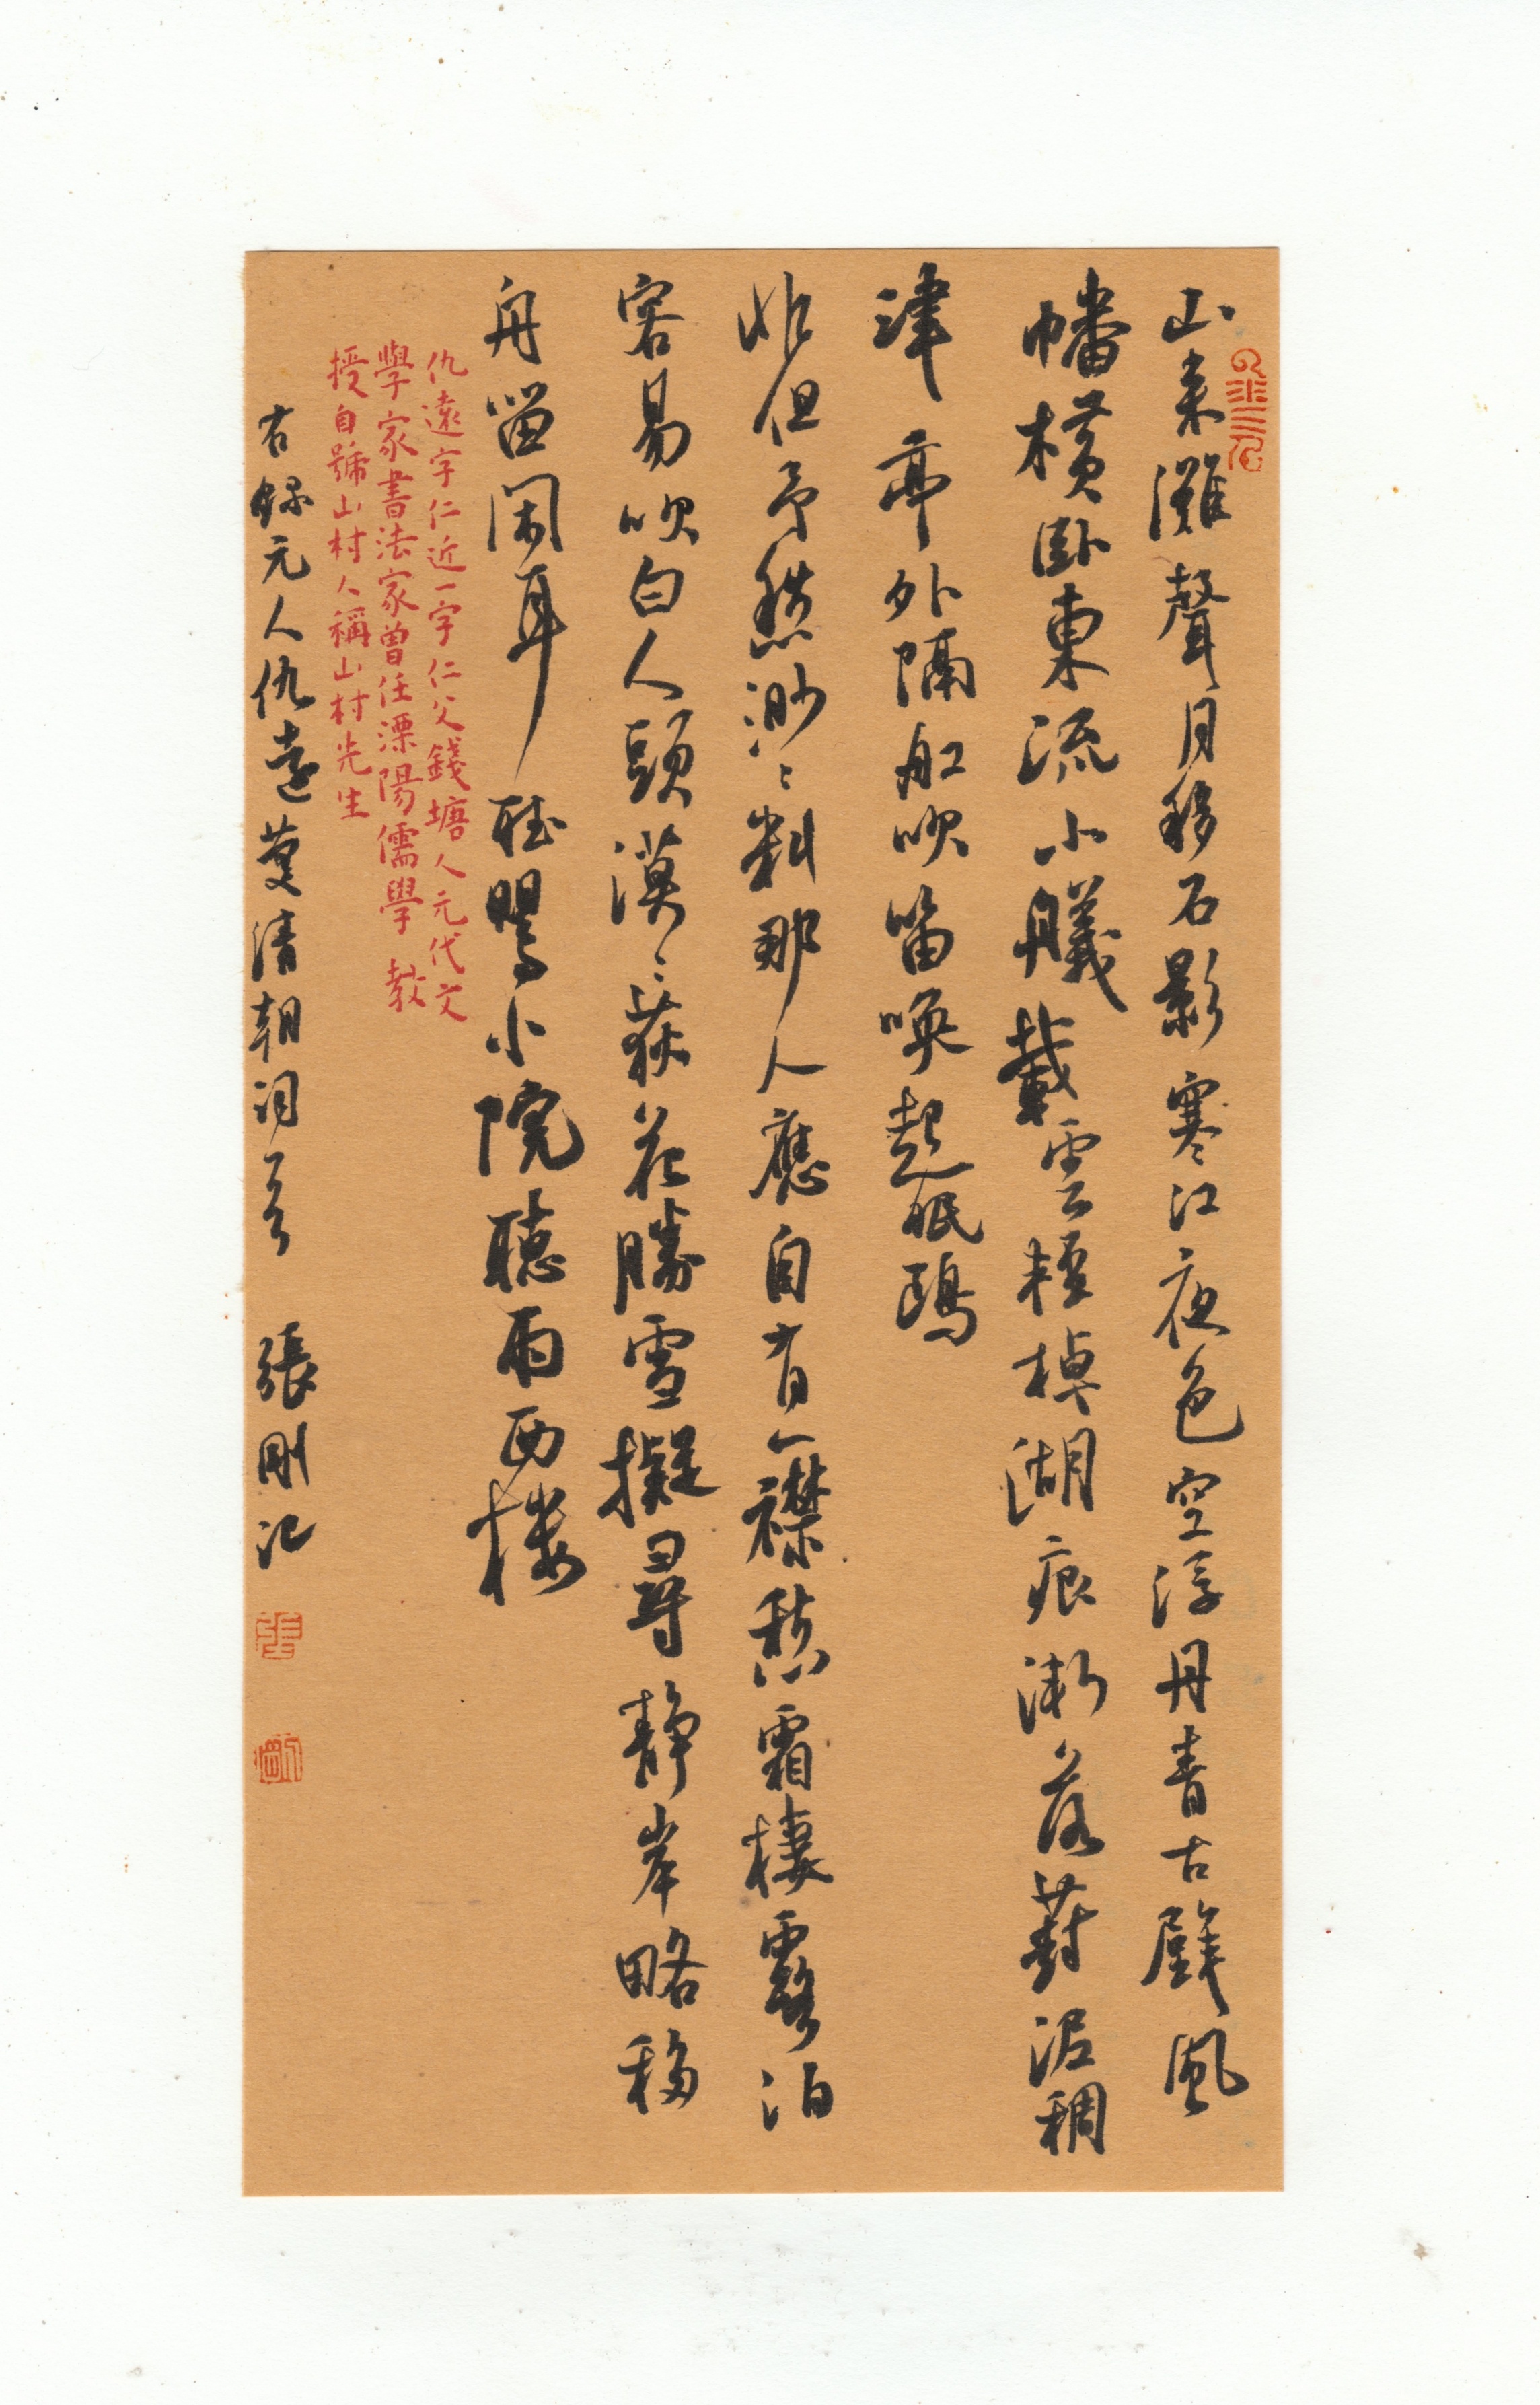 山束灘聲月移石影寒江夜色空浮丹青古壁風
幡橫卧東流小艤載雲輕棹湖痕漸落葑泥稠
津亭外隔船吹笛喚起眠鷗
非但予愁渺〻料那人應自有一襟愁霜棲露泊
容易吹白人頭漠〻荻花勝雪擬尋靜岸略移
舟留閑耳聽鶯小院聽雨西樓
仇遠字仁近一字仁父錢塘人元代文
學家書法家曾任溧陽儒學教
授自號山村人稱山村先生
右錄元人仇遠慶清朝詞一首 張剛記